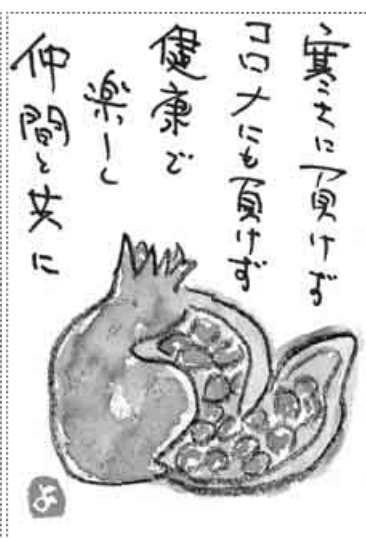 寒さに負けず
コロナにも負けず
健康で
楽しく
仲間と共に
よ